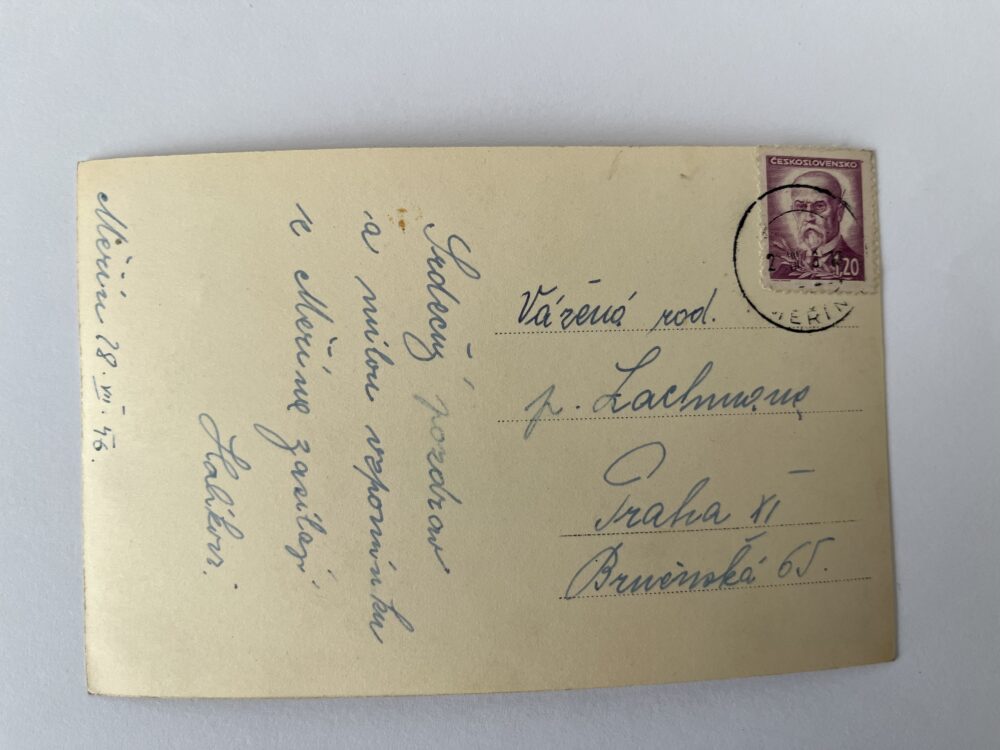 Měřín 28. VII. 46.
Srdečný pozdrav
a milou vzpomínku
z Měřína zasílají
Halíkovi.
ČESKOSLOVENSKO
1,20
MĚŘÍN
Vážená rod.
p. Lachmana
Praha XI
Brněnská 65.